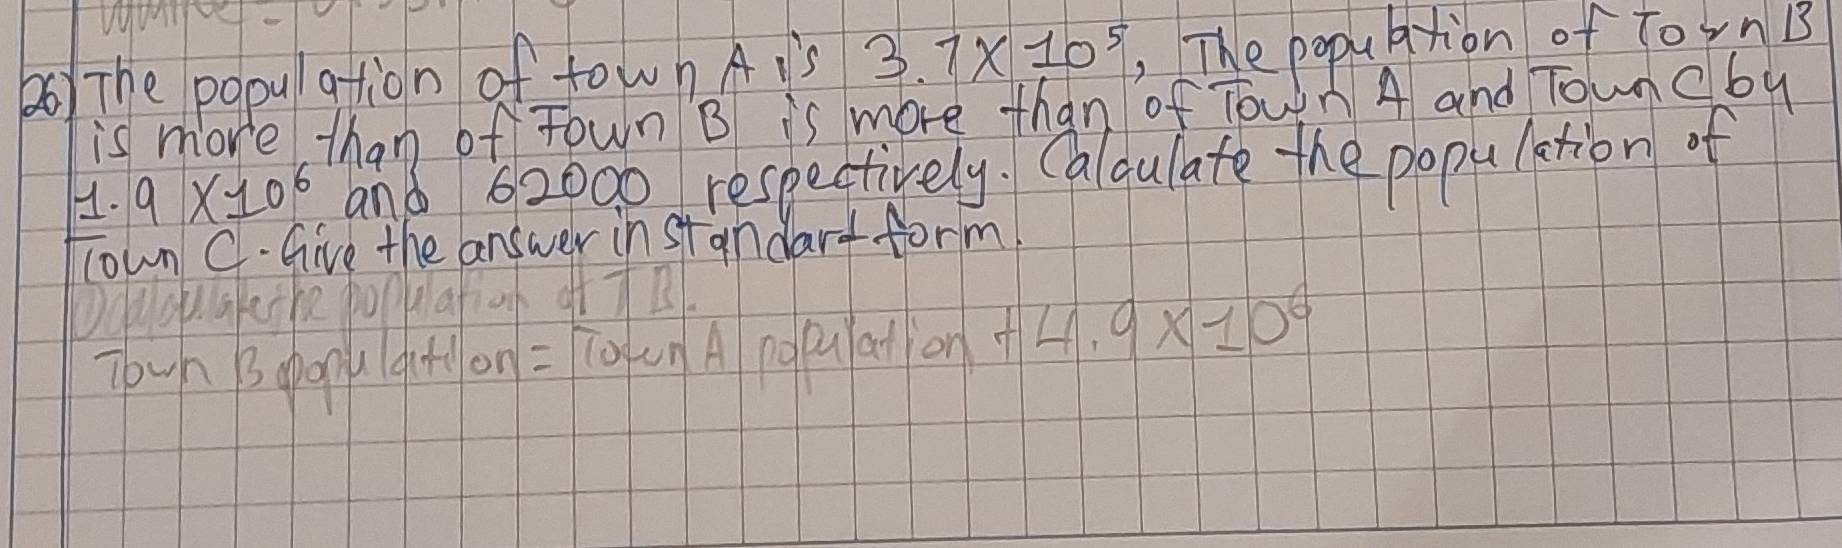 26) The population of town A is 3.7 x 10⁵, The population of Town B
is more than of Town B is more than of Town A and Town C by
1.9 x 10⁶ and 62000 respectively. Calculate the population of
Town C. Give the answer in standard form.
calculate the population of T B.
Town B population = Town A population + 4.9 x 10⁶